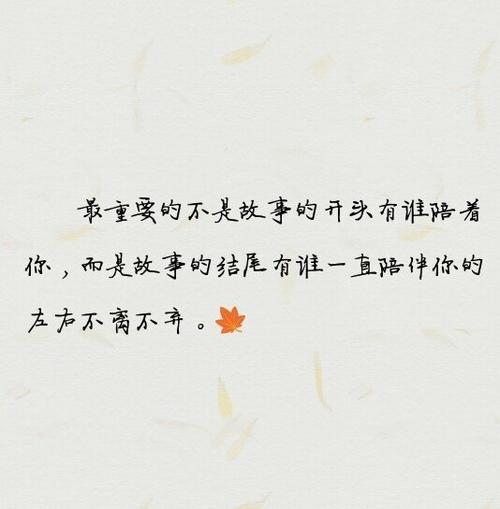 最重要的不是故事的开头有谁陪着
你，而是故事的结尾有谁一直陪伴你的
左右不离不弃。🍁